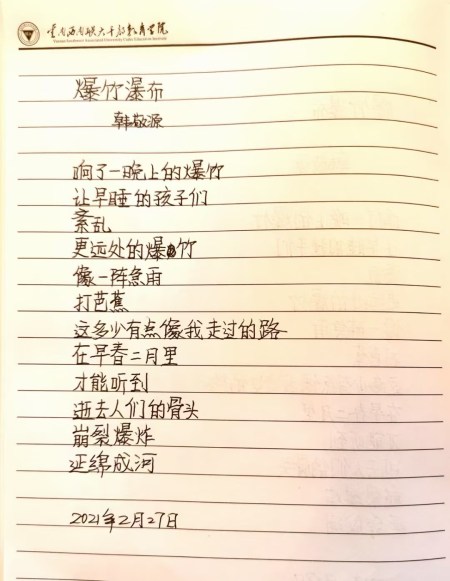 云南西南联大干部教育学院
爆竹瀑布
韩敬源
响了一晚上的爆竹
让早睡的孩子们
紊乱
更远处的爆竹
像一阵急雨
打芭蕉
这多少有点像我走过的路
在早春二月里
才能听到
逝去人们的骨头
崩裂爆炸
延绵成河
2021年2月27日